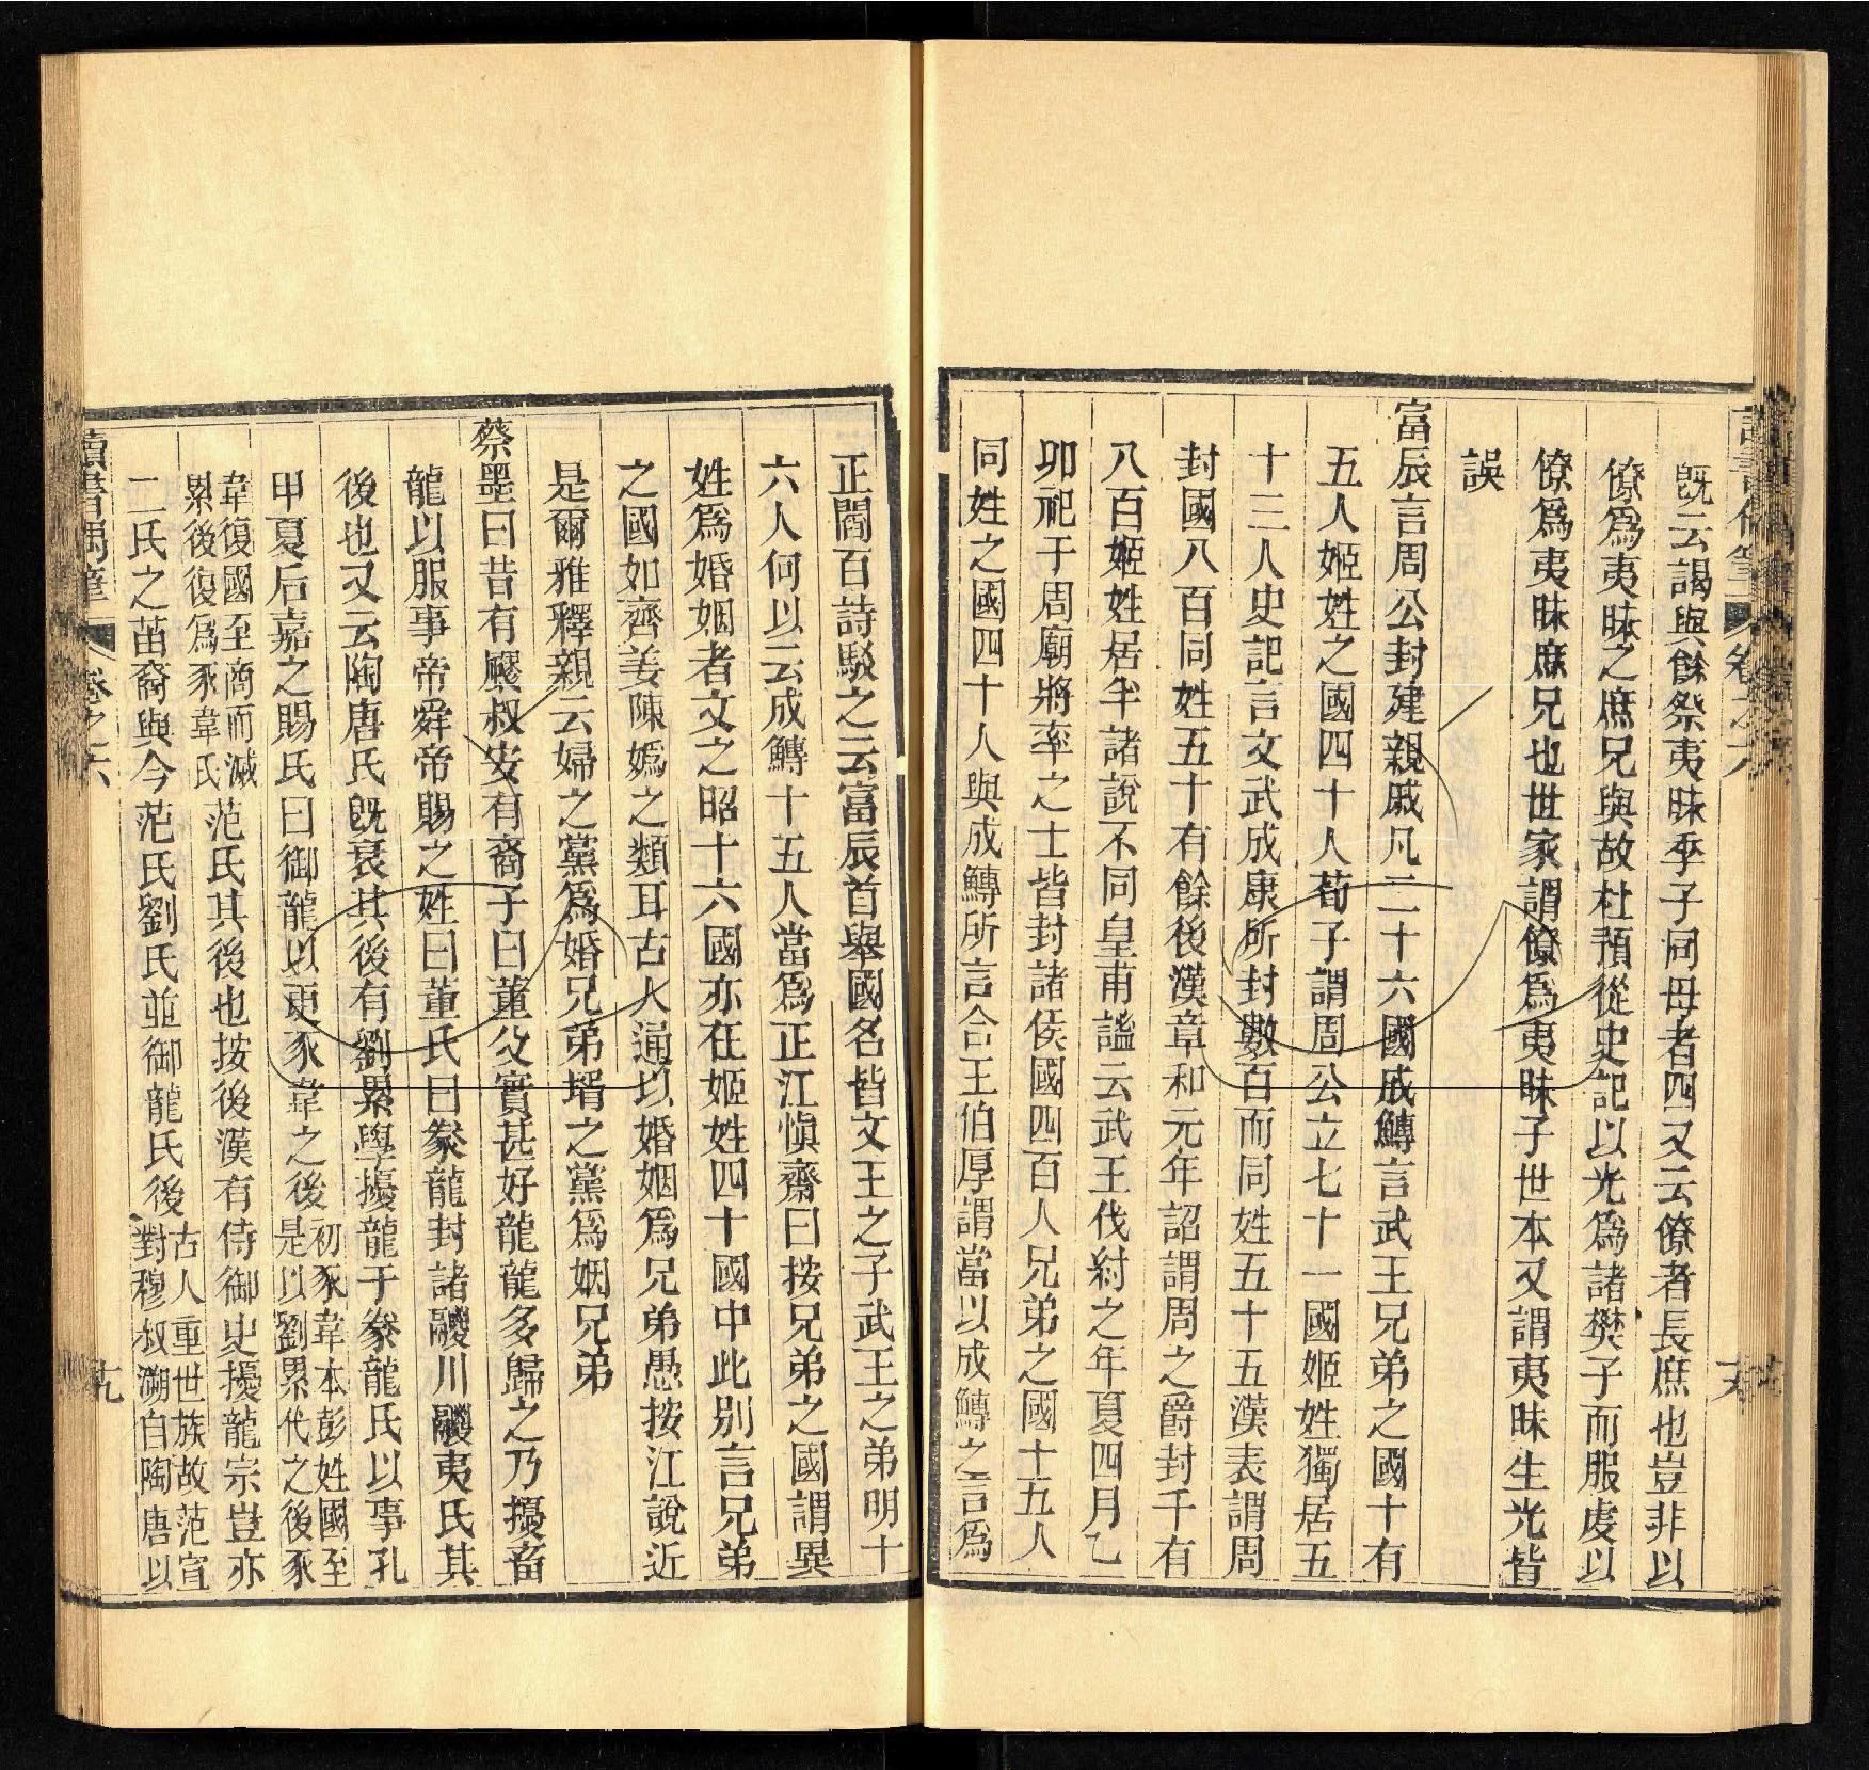 既云謁與餘祭夷昧季子同母者四又云僚者長庶也豈非以
僚爲夷昧之庶兄與故杜預從史記以光爲諸樊子而服虔以
僚爲夷昧庶兄也世家謂僚爲夷昧子世本又謂夷昧生光皆
誤
富辰言周公封建親戚凡二十六國成鱄言武王兄弟之國十有
五人姬姓之國四十人荀子謂周公立七十一國姬姓獨居五
十三人史記言文武成康所封數百而同姓五十五漢表謂周
封國八百同姓五十有餘後漢章和元年詔謂周之爵封千有
八百姬姓居半諸說不同皇甫謐云武王伐紂之年夏四月乙
卯祀于周廟將率之士皆封諸侯國四百人兄弟之國十五人
同姓之國四十人與成鱄所言合王伯厚謂當以成鱄之言爲
正閻百詩駁之云富辰首舉國名皆文王之子武王之弟明十
六人何以云成鱄十五人當爲正江慎齋曰按兄弟之國謂異
姓爲婚姻者文之昭十六國亦在姬姓四十國中此別言兄弟
之國如齊姜陳嬀之類耳古人通以婚姻爲兄弟愚按江說近
是爾雅釋親云婦之黨爲婚兄弟壻之黨爲姻兄弟
蔡墨曰昔有飂叔安有裔子曰董父實甚好龍龍多歸之乃擾畜
龍以服事帝舜帝賜之姓曰董氏曰豢龍封諸鬷川鬷夷氏其
後也又云陶唐氏既衰其後有劉累學擾龍于豢龍氏以事孔
甲夏后嘉之賜氏曰御龍以更豕韋之後初豕韋本彭姓國至
是以劉累代之後豕
韋復國至商而滅
累後復爲豕韋氏范氏其後也按後漢有侍御史擾龍宗豈亦
二氏之苗裔與今范氏劉氏並御龍氏後古人重世族故范宣
對穆叔溯自陶唐以
讀書偶筆 卷之六 九